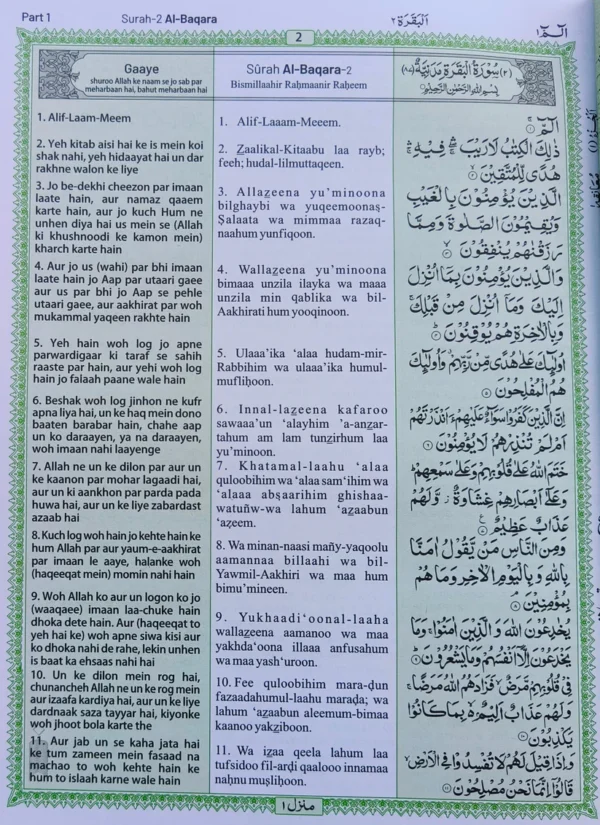 Part 1
Surah-2 Al-Baqara
اَلْبَقَرَة ٢
الٓمّٓ ١
2
Gaaye
shuroo Allah ke naam se jo sab par
meharbaan hai, bahut meharbaan hai
Sūrah Al-Baqara-2
Bismillaahir Raḥmaanir Raḥeem
(٢) سُوْرَةُ الْبَقَرَةِ مَدَنِيَّةٌ (٨٧)
بِسْمِ اللهِ الرَّحْمٰنِ الرَّحِيْمِ
1. Alif-Laam-Meem
2. Yeh kitab aisi hai ke is mein koi
shak nahi, yeh hidaayat hai un dar
rakhne walon ke liye
3. Jo be-dekhi cheezon par imaan
laate hain, aur namaz qaaem
karte hain, aur jo kuch Hum ne
unhen diya hai us mein se (Allah
ki khushnoodi ke kamon mein)
kharch karte hain
4. Aur jo us (wahi) par bhi imaan
laate hain jo Aap par utaari gayee
aur us par bhi jo Aap se pehle
utaari gaee, aur aakhirat par woh
mukammal yaqeen rakhte hain
5. Yeh hain woh log jo apne
parwardigaar ki taraf se sahih
raaste par hain, aur yehi woh log
hain jo falaah paane wale hain
6. Beshak woh log jinhon ne kufr
apna liya hai, un ke haq mein dono
baaten barabar hain, chahe aap
un ko daraayen, ya na daraayen,
woh imaan nahi laayenge
7. Allah ne un ke dilon par aur un
ke kaanon par mohar lagaadi hai,
aur un ki aankhon par parda pada
huwa hai, aur un ke liye zabardast
azaab hai
8. Kuch log woh hain jo kehte hain ke
hum Allah par aur yaum-e-aakhirat
par imaan le aaye, halanke woh
(haqeeqat mein) momin nahi hain
9. Woh Allah ko aur un logon ko jo
(waaqaee) imaan laa-chuke hain
dhoka dete hain. Aur (haqeeqat to
yeh hai ke) woh apne siwa kisi aur
ko dhoka nahi de rahe, lekin unhen
is baat ka ehsaas nahi hai
10. Un ke dilon mein rog hai,
chunancheh Allah ne un ke rog mein
aur izaafa kardiya hai, aur un ke liye
dardnaak saza tayyar hai, kiyonke
woh jhoot bola karte the
11. Aur jab un se kaha jata hai
ke tum zameen mein fasaad na
machao to woh kehte hain ke
hum to islaah karne wale hain
1. Alif-Laaam-Meeem.
2. Z̲aalikal-Kitaabu laa rayb;
feeh; hudal-lilmuttaqeen.
3. Allaz̲eena yu’minoona
bilghaybi wa yuqeemoonaṣ-
Ṣalaata wa mimmaa razaq-
naahum yunfiqoon.
4. Wallaz̲eena yu’minoona
bimaaa unzila ilayka wa maaa
unzila min qablika wa bil-
Aakhirati hum yooqinoon.
5. Ulaaa’ika ‘alaa hudam-mir-
Rabbihim wa ulaaa’ika humul-
mufliḥoon.
6. Innal-laz̲eena kafaroo
sawaaa’un ‘alayhim ’a-anz̲ar-
tahum am lam tunz̲irhum laa
yu’minoon.
7. Khatamal-laahu ‘alaa
quloobihim wa ‘alaa sam‘ihim wa
‘alaaa abṣaarihim ghishaa-
watuñw-wa lahum ‘az̲aabun
‘aẓeem.
8. Wa minan-naasi mañy-yaqoolu
aamannaa billaahi wa bil-
Yawmil-Aakhiri wa maa hum
bimu’mineen.
9. Yukhaadi‘oonal-laaha
wallaz̲eena aamanoo wa maa
yakhda‘oona illaaa anfusahum
wa maa yash‘uroon.
10. Fee quloobihim mara-ḍun
fazaadahumul-laahu maraḍa; wa
lahum ‘az̲aabun aleemum-bimaa
kaanoo yakz̲iboon.
11. Wa iz̲aa qeela lahum laa
tufsidoo fil-arḍi qaalooo innamaa
naḥnu muṣliḥoon.
الٓمّٓ ۝١
ذٰلِكَ الْكِتٰبُ لَا رَيْبَ ۛۖ فِيْهِ ۛۚ
هُدًى لِّلْمُتَّقِيْنَ ۝٢
الَّذِيْنَ يُؤْمِنُوْنَ بِالْغَيْبِ
وَيُقِيْمُوْنَ الصَّلٰوةَ وَمِمَّا
رَزَقْنٰهُمْ يُنْفِقُوْنَ ۝٣
وَالَّذِيْنَ يُؤْمِنُوْنَ بِمَآ اُنْزِلَ
اِلَيْكَ وَمَآ اُنْزِلَ مِنْ قَبْلِكَ ۚ
وَبِالْاٰخِرَةِ هُمْ يُوْقِنُوْنَ ۝٤
اُولٰٓئِكَ عَلٰى هُدًى مِّنْ رَّبِّهِمْ ۗ وَاُولٰٓئِكَ
هُمُ الْمُفْلِحُوْنَ ۝٥
اِنَّ الَّذِيْنَ كَفَرُوْا سَوَآءٌ عَلَيْهِمْ ءَاَنْذَرْتَهُمْ
اَمْ لَمْ تُنْذِرْهُمْ لَا يُؤْمِنُوْنَ ۝٦
خَتَمَ اللهُ عَلٰى قُلُوْبِهِمْ وَعَلٰى سَمْعِهِمْ ۗ
وَعَلٰٓى اَبْصَارِهِمْ غِشَاوَةٌ ۖ وَّلَهُمْ
عَذَابٌ عَظِيْمٌ ۝٧
وَمِنَ النَّاسِ مَنْ يَّقُوْلُ اٰمَنَّا
بِاللهِ وَبِالْيَوْمِ الْاٰخِرِ وَمَا هُمْ
بِمُؤْمِنِيْنَ ۝٨
يُخٰدِعُوْنَ اللهَ وَالَّذِيْنَ اٰمَنُوْا ۚ وَمَا
يَخْدَعُوْنَ اِلَّآ اَنْفُسَهُمْ وَمَا يَشْعُرُوْنَ ۝٩
فِيْ قُلُوْبِهِمْ مَّرَضٌ ۙ فَزَادَهُمُ اللهُ مَرَضًا ۚ
وَلَهُمْ عَذَابٌ اَلِيْمٌ ۢ بِمَا كَانُوْا
يَكْذِبُوْنَ ۝١٠
وَاِذَا قِيْلَ لَهُمْ لَا تُفْسِدُوْا فِي الْاَرْضِ ۙ
قَالُوْٓا اِنَّمَا نَحْنُ مُصْلِحُوْنَ ۝١١
منزل ١